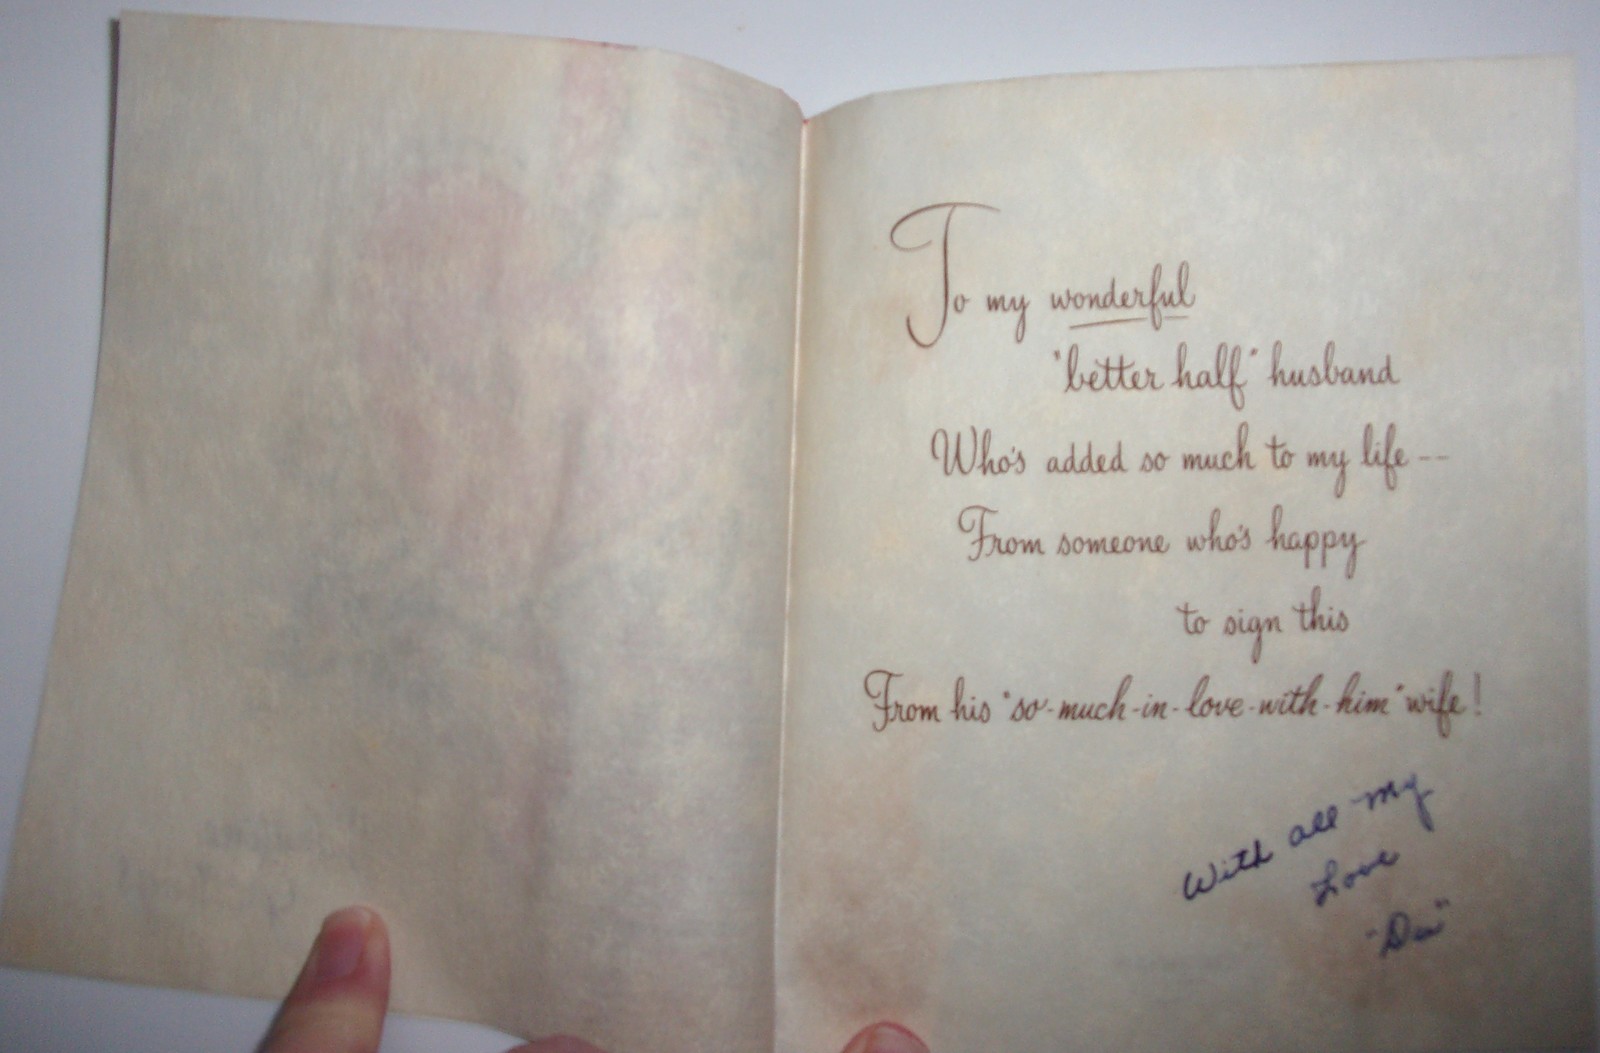 To my wonderful
"better half" husband
Who's added so much to my life --
From someone who's happy
to sign this
From his "so-much-in-love-with-him" wife!
With all my
Love